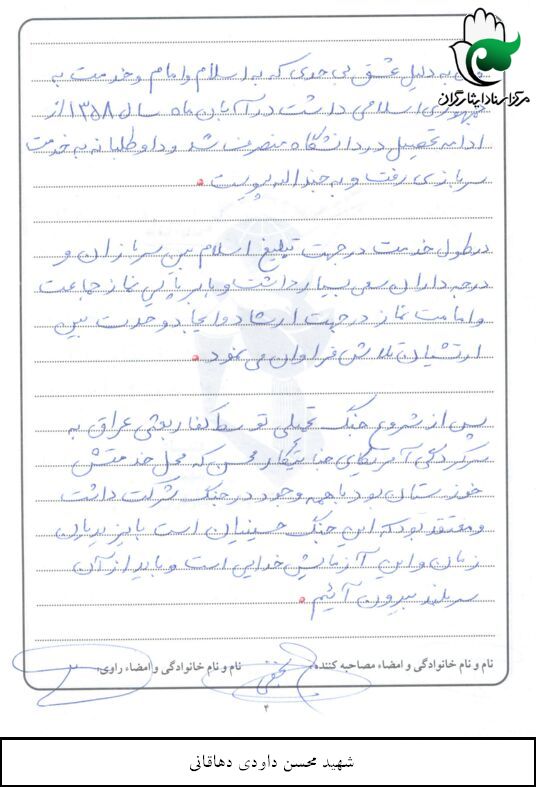 مرکز اسناد ایثارگران
به دلیل عشق بی حدی که به اسلام و امام و خدمت به
جمهوری اسلامی داشت در آبان ماه سال ۱۳۵۸ از
ادامه تحصیل در دانشگاه منصرف شد و داوطلبانه به خدمت
سربازی رفت و به جند اله پیوست.
در طول خدمت در جهت تبلیغ اسلام بین سربازان و
درجه داران سعی بسیار داشت و با بر پایی نماز جماعت
و امامت نماز در جهت ارشاد و ایجاد وحدت بین
ارتشیان تلاش فراوان می نمود.
پس از شروع جنگ تحمیلی توسط کفار بعثی عراق به
سرکردگی آمریکای جنایتکار محسن که محل خدمتش
خوزستان بود با همه وجود در جنگ شرکت داشت
و معتقد بود که این جنگ حسینیان است با یزیدیان
زمان و این آزمایش خدایی است و باید از آن
سربلند بیرون آئیم.
نام و نام خانوادگی و امضاء مصاحبه کننده: نام و نام خانوادگی و امضاء راوی:
۴
شهید محسن داودی دهاقانی